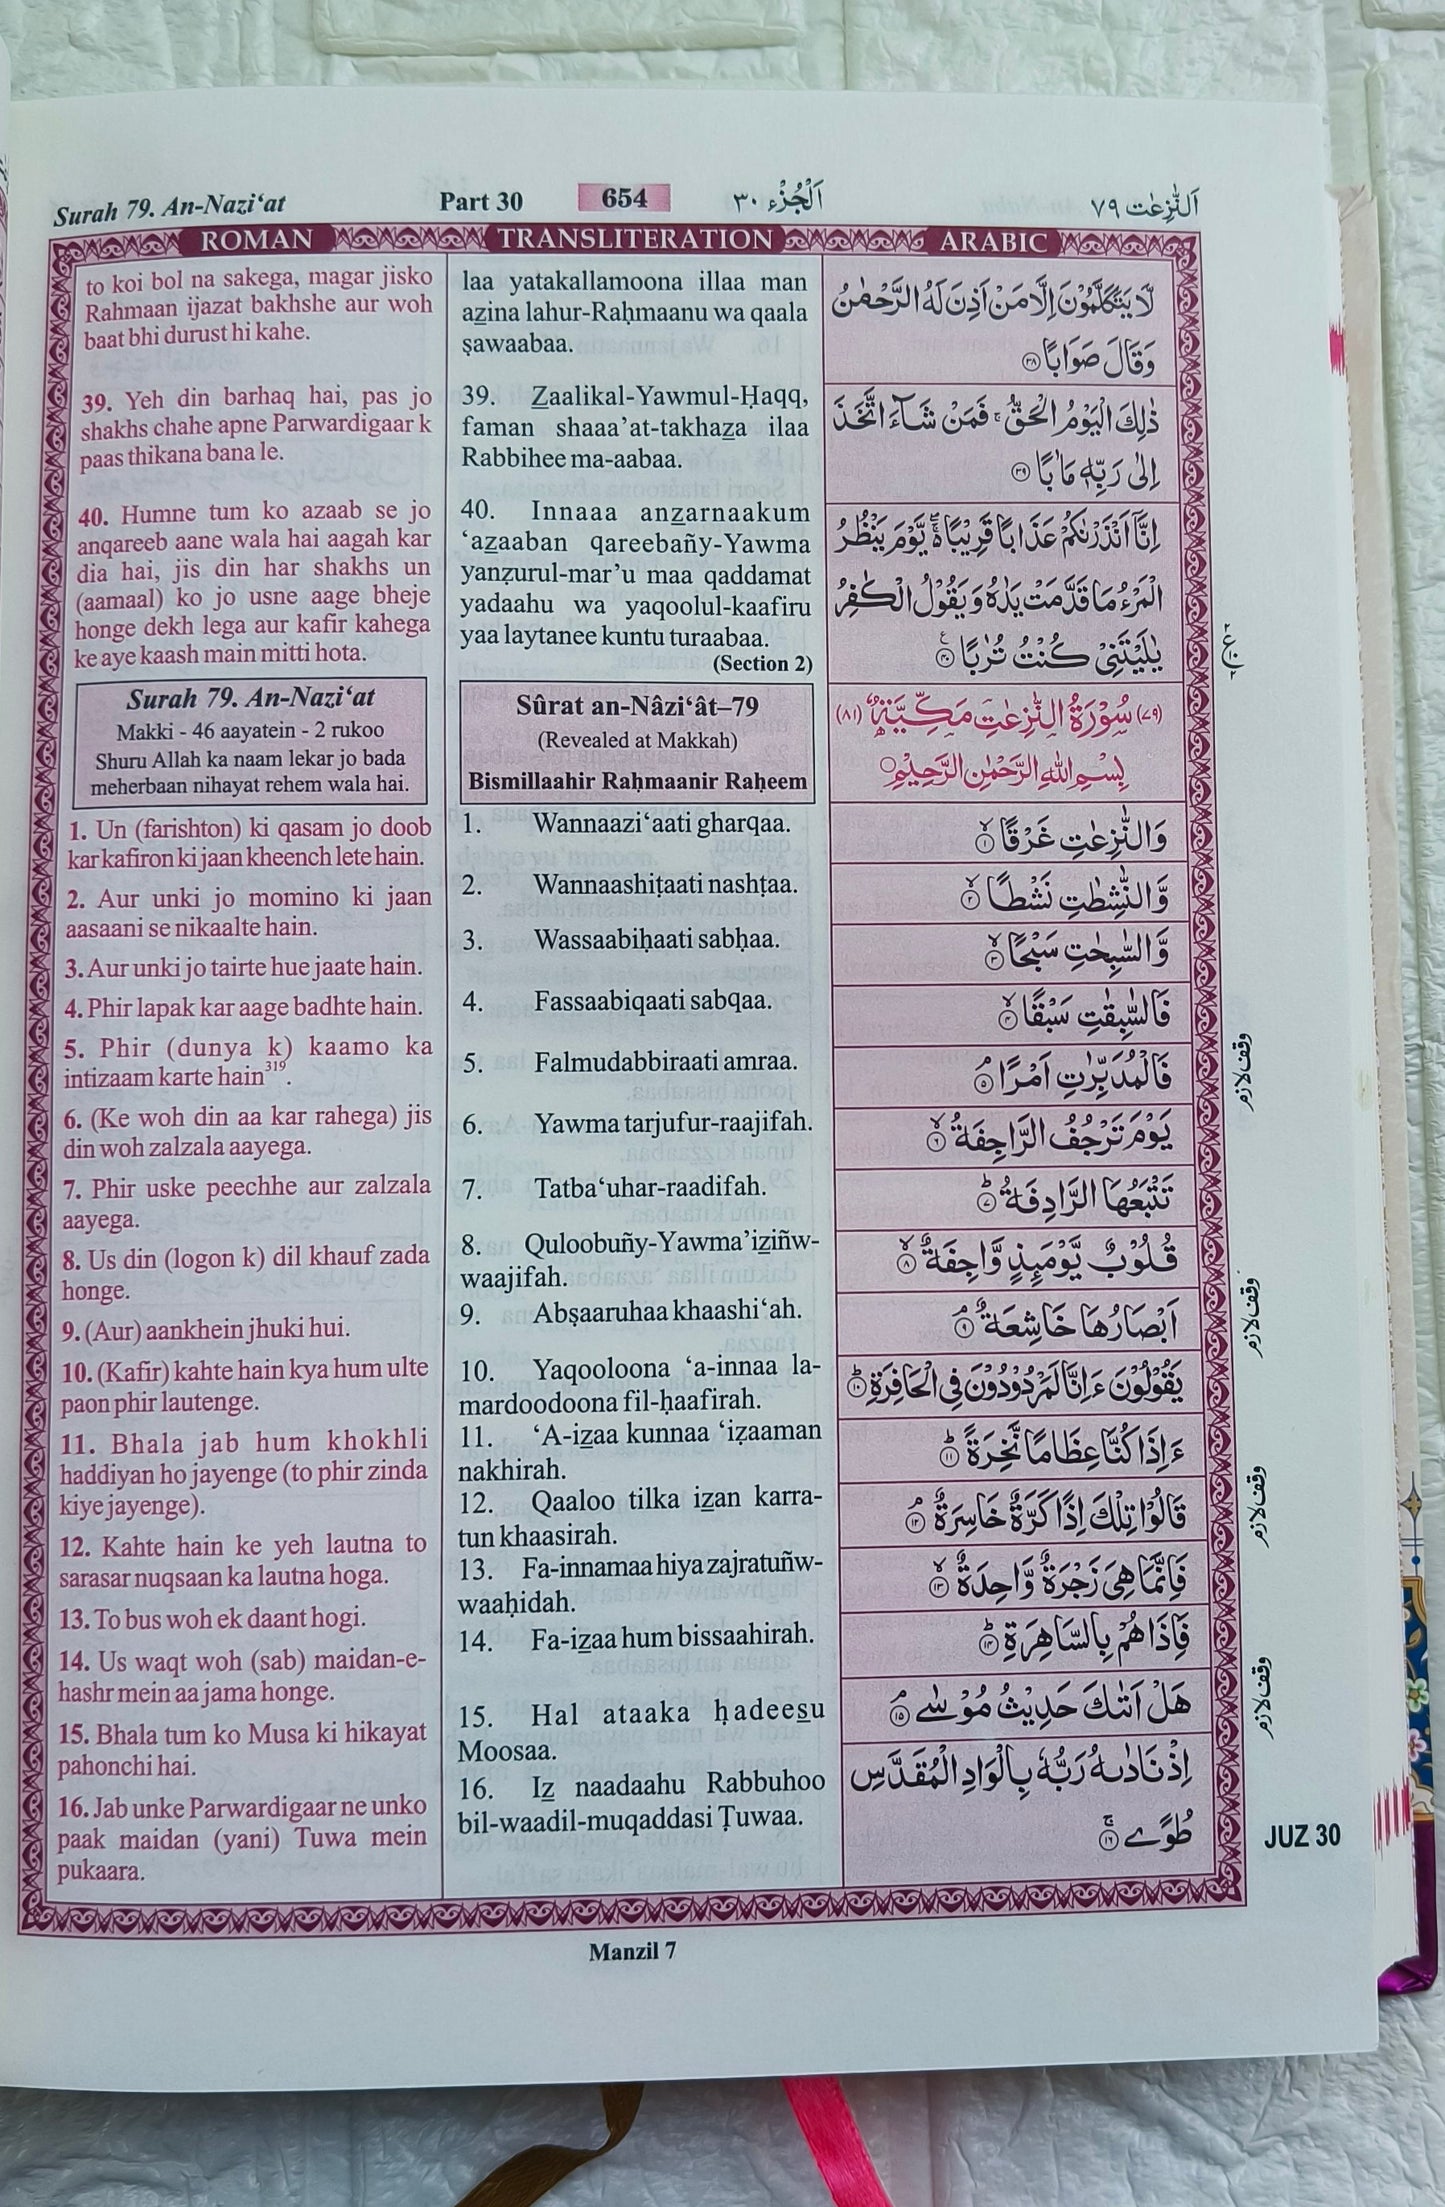 Surah 79. An-Nazi‘at
Part 30
654
اَلْجُزْء ٣٠
اَلنّٰزِعٰت ٧٩
ROMAN
TRANSLITERATION
ARABIC
to koi bol na sakega, magar jisko
Rahmaan ijazat bakhshe aur woh
baat bhi durust hi kahe.
39. Yeh din barhaq hai, pas jo
shakhs chahe apne Parwardigaar k
paas thikana bana le.
40. Humne tum ko azaab se jo
anqareeb aane wala hai aagah kar
dia hai, jis din har shakhs un
(aamaal) ko jo usne aage bheje
honge dekh lega aur kafir kahega
ke aye kaash main mitti hota.
Surah 79. An-Nazi‘at
Makki - 46 aayatein - 2 rukoo
Shuru Allah ka naam lekar jo bada
meherbaan nihayat rehem wala hai.
1. Un (farishton) ki qasam jo doob
kar kafiron ki jaan kheench lete hain.
2. Aur unki jo momino ki jaan
aasaani se nikaalte hain.
3. Aur unki jo tairte hue jaate hain.
4. Phir lapak kar aage badhte hain.
5. Phir (dunya k) kaamo ka
intizaam karte hain319.
6. (Ke woh din aa kar rahega) jis
din woh zalzala aayega.
7. Phir uske peechhe aur zalzala
aayega.
8. Us din (logon k) dil khauf zada
honge.
9. (Aur) aankhein jhuki hui.
10. (Kafir) kahte hain kya hum ulte
paon phir lautenge.
11. Bhala jab hum khokhli
haddiyan ho jayenge (to phir zinda
kiye jayenge).
12. Kahte hain ke yeh lautna to
sarasar nuqsaan ka lautna hoga.
13. To bus woh ek daant hogi.
14. Us waqt woh (sab) maidan-e-
hashr mein aa jama honge.
15. Bhala tum ko Musa ki hikayat
pahonchi hai.
16. Jab unke Parwardigaar ne unko
paak maidan (yani) Tuwa mein
pukaara.
laa yatakallamoona illaa man
azina lahur-Raḥmaanu wa qaala
ṣawaabaa.
39. Zaalikal-Yawmul-Ḥaqq,
faman shaaa’at-takhaza ilaa
Rabbihee ma-aabaa.
40. Innaaa anzarnaakum
‘azaaban qareebañy-Yawma
yanẓurul-mar’u maa qaddamat
yadaahu wa yaqoolul-kaafiru
yaa laytanee kuntu turaabaa.
(Section 2)
Sûrat an-Nâzi‘ât–79
(Revealed at Makkah)
Bismillaahir Raḥmaanir Raḥeem
1. Wannaazi‘aati gharqaa.
2. Wannaashiṭaati nashṭaa.
3. Wassaabiḥaati sabḥaa.
4. Fassaabiqaati sabqaa.
5. Falmudabbiraati amraa.
6. Yawma tarjufur-raajifah.
7. Tatba‘uhar-raadifah.
8. Quloobuñy-Yawma’iziñw-
waajifah.
9. Abṣaaruhaa khaashi‘ah.
10. Yaqooloona ‘a-innaa la-
mardoodoona fil-ḥaafirah.
11. ‘A-izaa kunnaa ‘iẓaaman
nakhirah.
12. Qaaloo tilka izan karra-
tun khaasirah.
13. Fa-innamaa hiya zajratuñw-
waaḥidah.
14. Fa-izaa hum bissaahirah.
15. Hal ataaka ḥadeesu
Moosaa.
16. Iz naadaahu Rabbuhoo
bil-waadil-muqaddasi Ṭuwaa.
لَّا يَتَكَلَّمُوْنَ اِلَّا مَنْ اَذِنَ لَهُ الرَّحْمٰنُ
وَقَالَ صَوَابًا ٣٨
ذٰلِكَ الْيَوْمُ الْحَقُّ ۚ فَمَنْ شَآءَ اتَّخَذَ
اِلٰى رَبِّهٖ مَاٰبًا ٣٩
اِنَّآ اَنْذَرْنٰكُمْ عَذَابًا قَرِيْبًا ۚ يَّوْمَ يَنْظُرُ
الْمَرْءُ مَا قَدَّمَتْ يَدٰهُ وَيَقُوْلُ الْكٰفِرُ
يٰلَيْتَنِيْ كُنْتُ تُرٰبًا ٤٠
(٧٩) سُوْرَةُ النّٰزِعٰتِ مَكِّيَّةٌ (٨١)
بِسْمِ اللهِ الرَّحْمٰنِ الرَّحِيْمِ
وَالنّٰزِعٰتِ غَرْقًا ١
وَّالنّٰشِطٰتِ نَشْطًا ٢
وَّالسّٰبِحٰتِ سَبْحًا ٣
فَالسّٰبِقٰتِ سَبْقًا ٤
فَالْمُدَبِّرٰتِ اَمْرًا ٥
يَوْمَ تَرْجُفُ الرَّاجِفَةُ ٦
تَتْبَعُهَا الرَّادِفَةُ ٧
قُلُوْبٌ يَّوْمَئِذٍ وَّاجِفَةٌ ٨
اَبْصَارُهَا خَاشِعَةٌ ٩
يَقُوْلُوْنَ ءَاِنَّا لَمَرْدُوْدُوْنَ فِى الْحَافِرَةِ ١٠
ءَاِذَا كُنَّا عِظَامًا نَّخِرَةً ١١
قَالُوْا تِلْكَ اِذًا كَرَّةٌ خَاسِرَةٌ ١٢
فَاِنَّمَا هِيَ زَجْرَةٌ وَّاحِدَةٌ ١٣
فَاِذَا هُمْ بِالسَّاهِرَةِ ١٤
هَلْ اَتٰىكَ حَدِيْثُ مُوْسٰى ١٥
اِذْ نَادٰىهُ رَبُّهٗ بِالْوَادِ الْمُقَدَّسِ
طُوًى ١٦
وقف لازم
وقف لازم
وقف لازم
وقف لازم
JUZ 30
Manzil 7